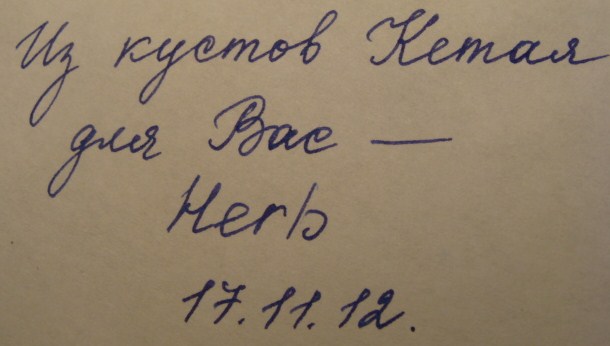 Из кустов Кетая
для Вас —
Herb
17.11.12.